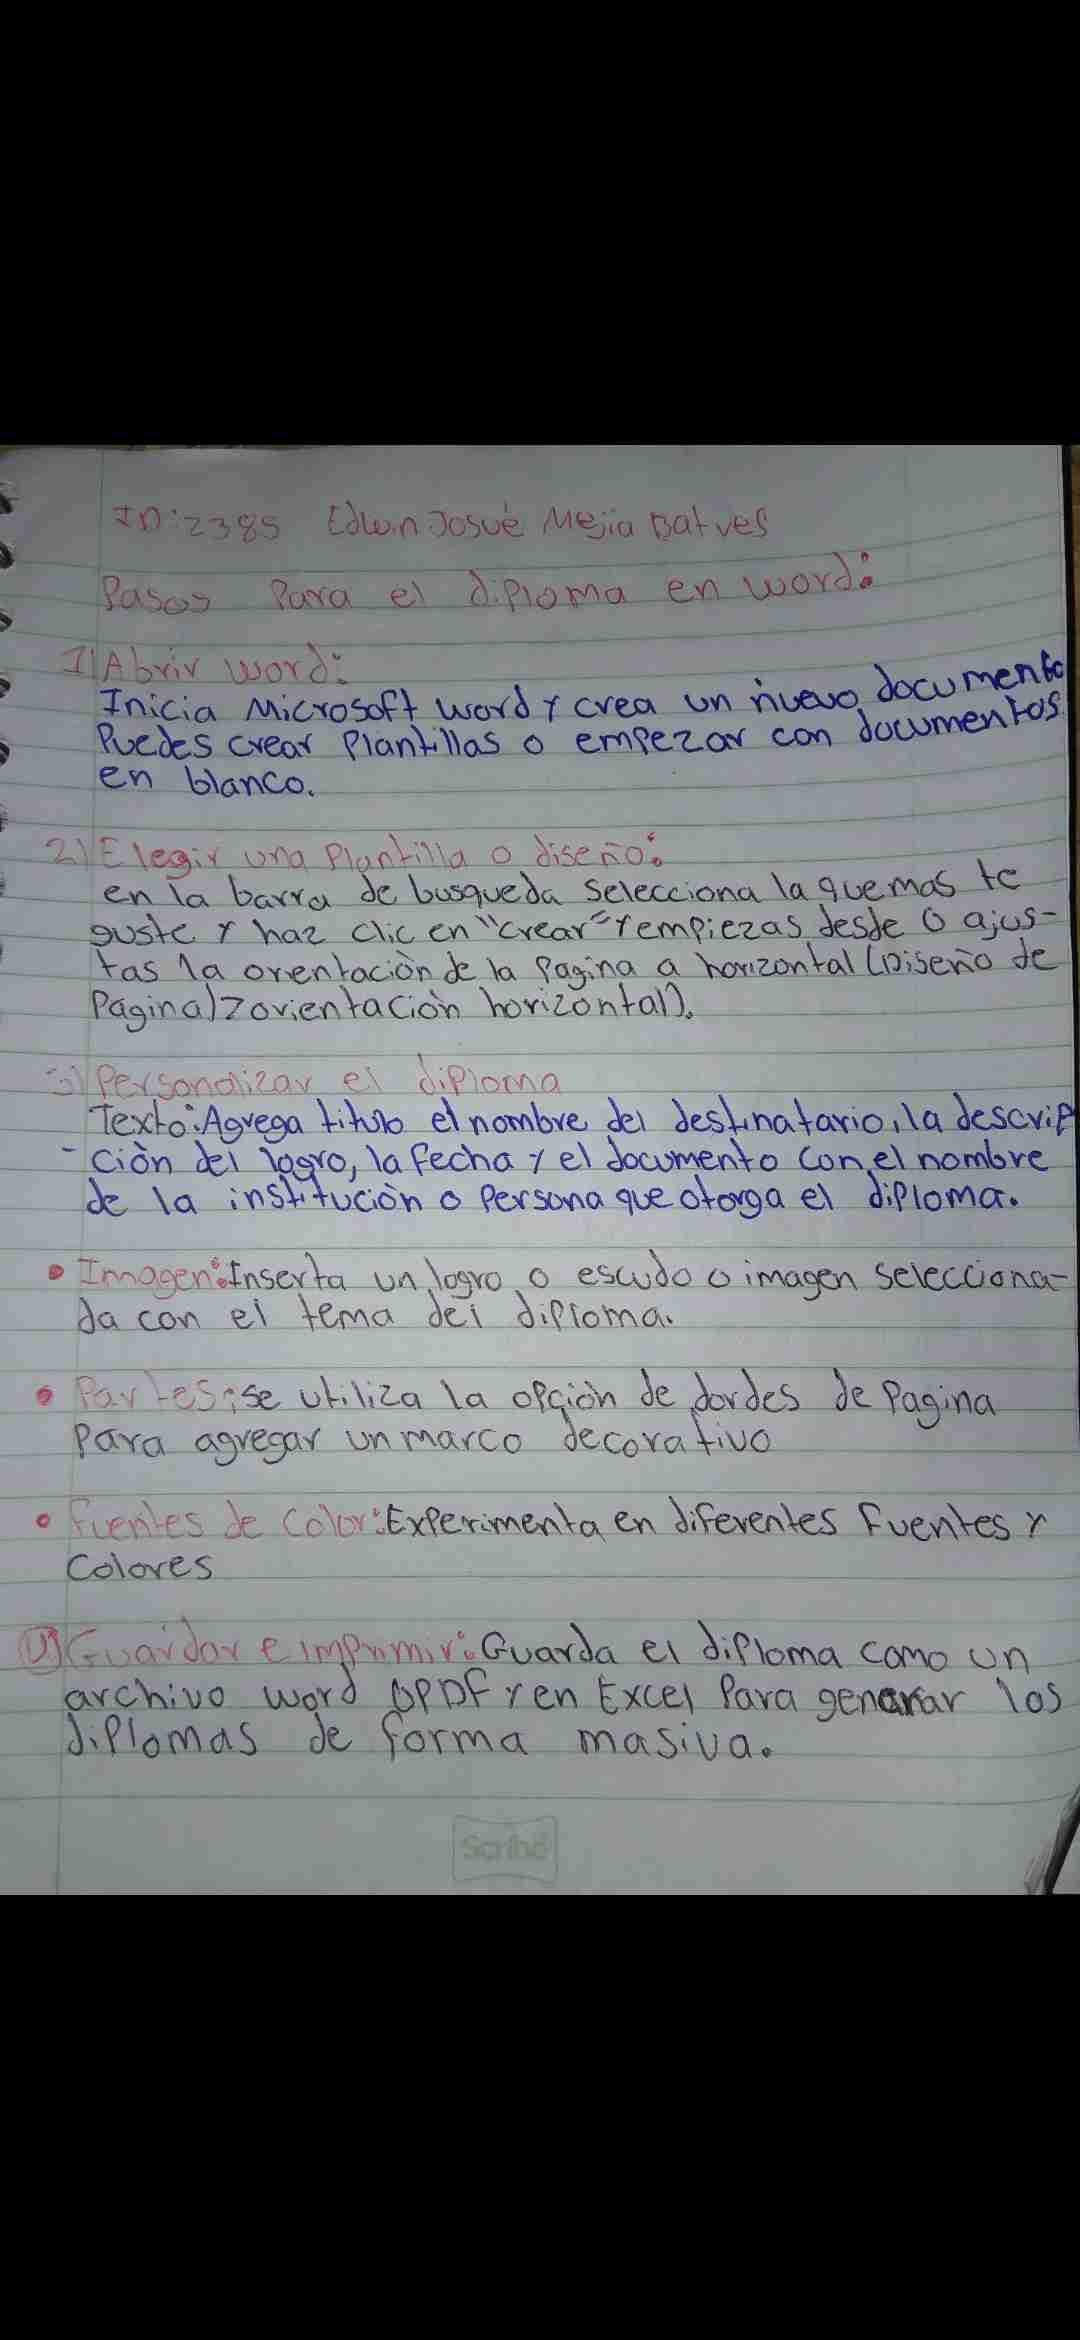 ID:2385 Edwin Josué Mejia Batves
Pasos Para el diploma en word:
1) Abrir word:
Inicia Microsoft word y crea un nuevo documento
Puedes crear Plantillas o empezar con documentos
en blanco.
2) Elegir una Plantilla o diseño:
en la barra de busqueda selecciona la que mas te
guste y haz clic en "crear" y empiezas desde 0 ajus-
tas la orentación de la Pagina a horizontal (Diseño de
Pagina) 7 orientación horizontal).
3) Personalizar el diploma
Texto: Agrega titulo el nombre del destinatario, la descrip
-ción del logro, la fecha y el documento con el nombre
de la institución o Persona que otorga el diploma.
• Imagen: Inserta un logro o escudo o imagen selecciona-
da con el tema del diploma.
• Partes: se utiliza la opción de dordes de Pagina
Para agregar un marco decorativo
• Fuentes de color: Experimenta en diferentes Fuentes y
Colores
4) Guardar e imprimir: Guarda el diploma como un
archivo word o PDF y en Excel Para generar los
diplomas de forma masiva.
Scribe